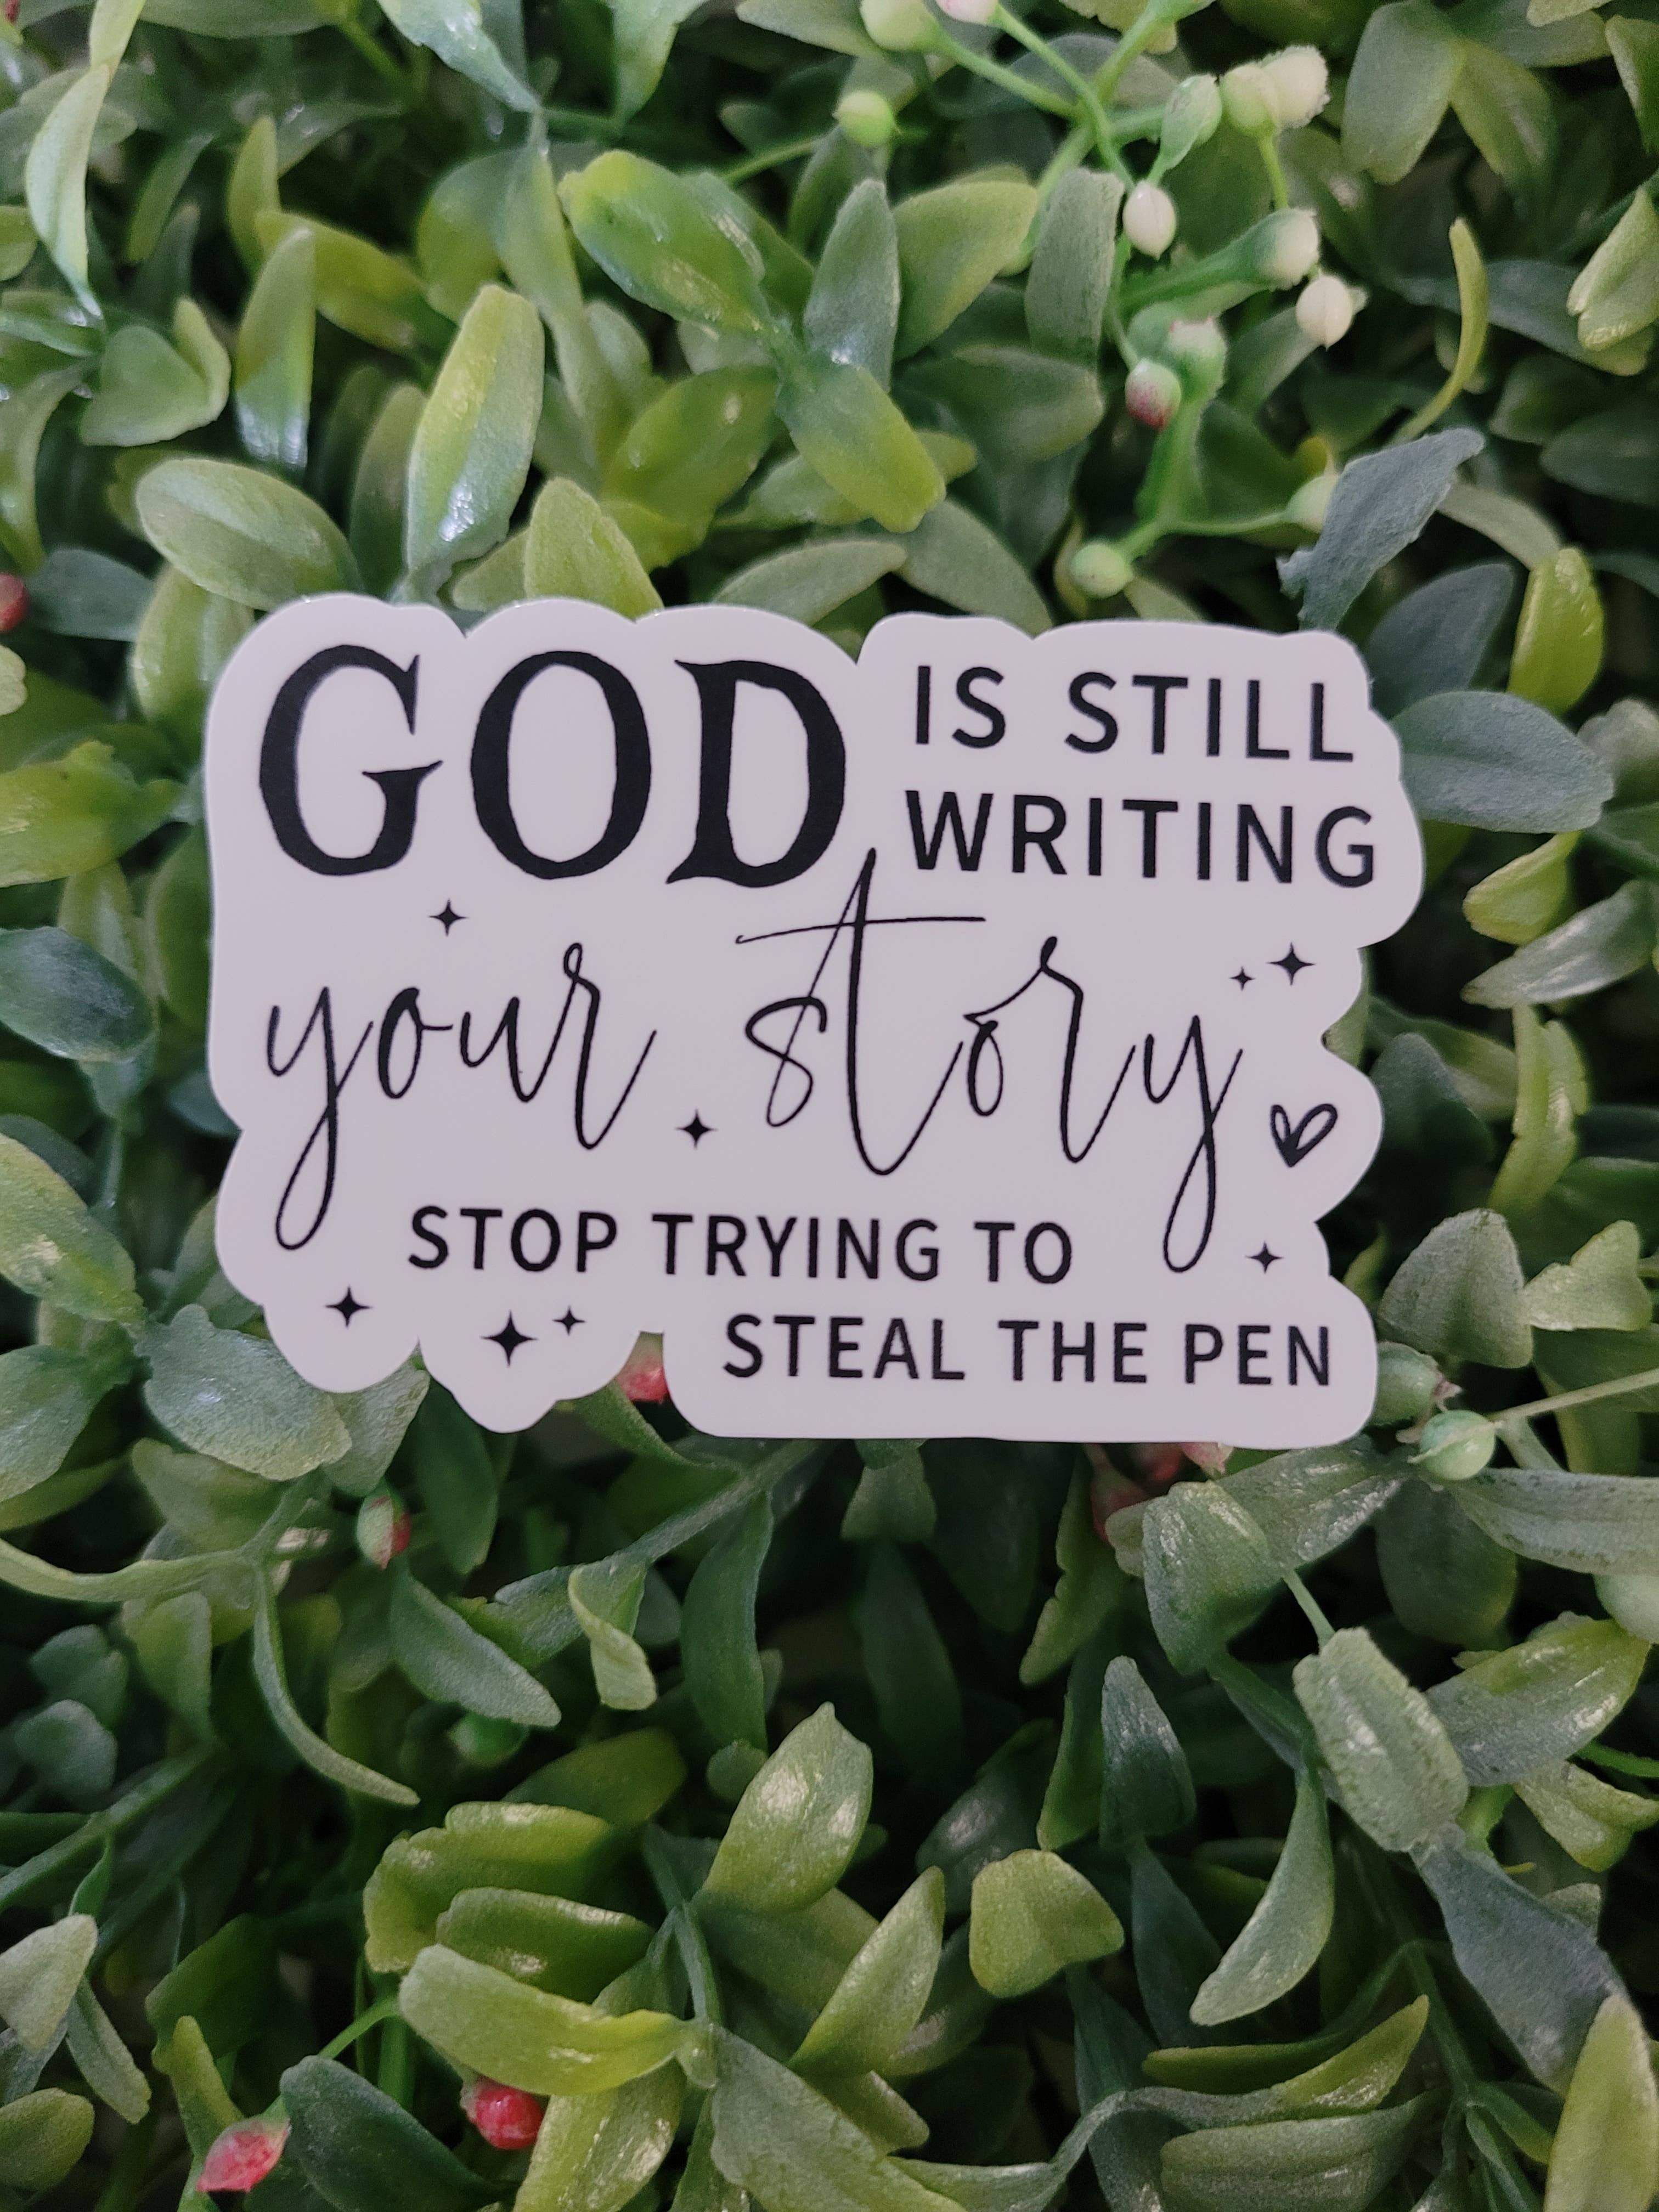 GOD IS STILL
WRITING
your story
STOP TRYING TO
STEAL THE PEN